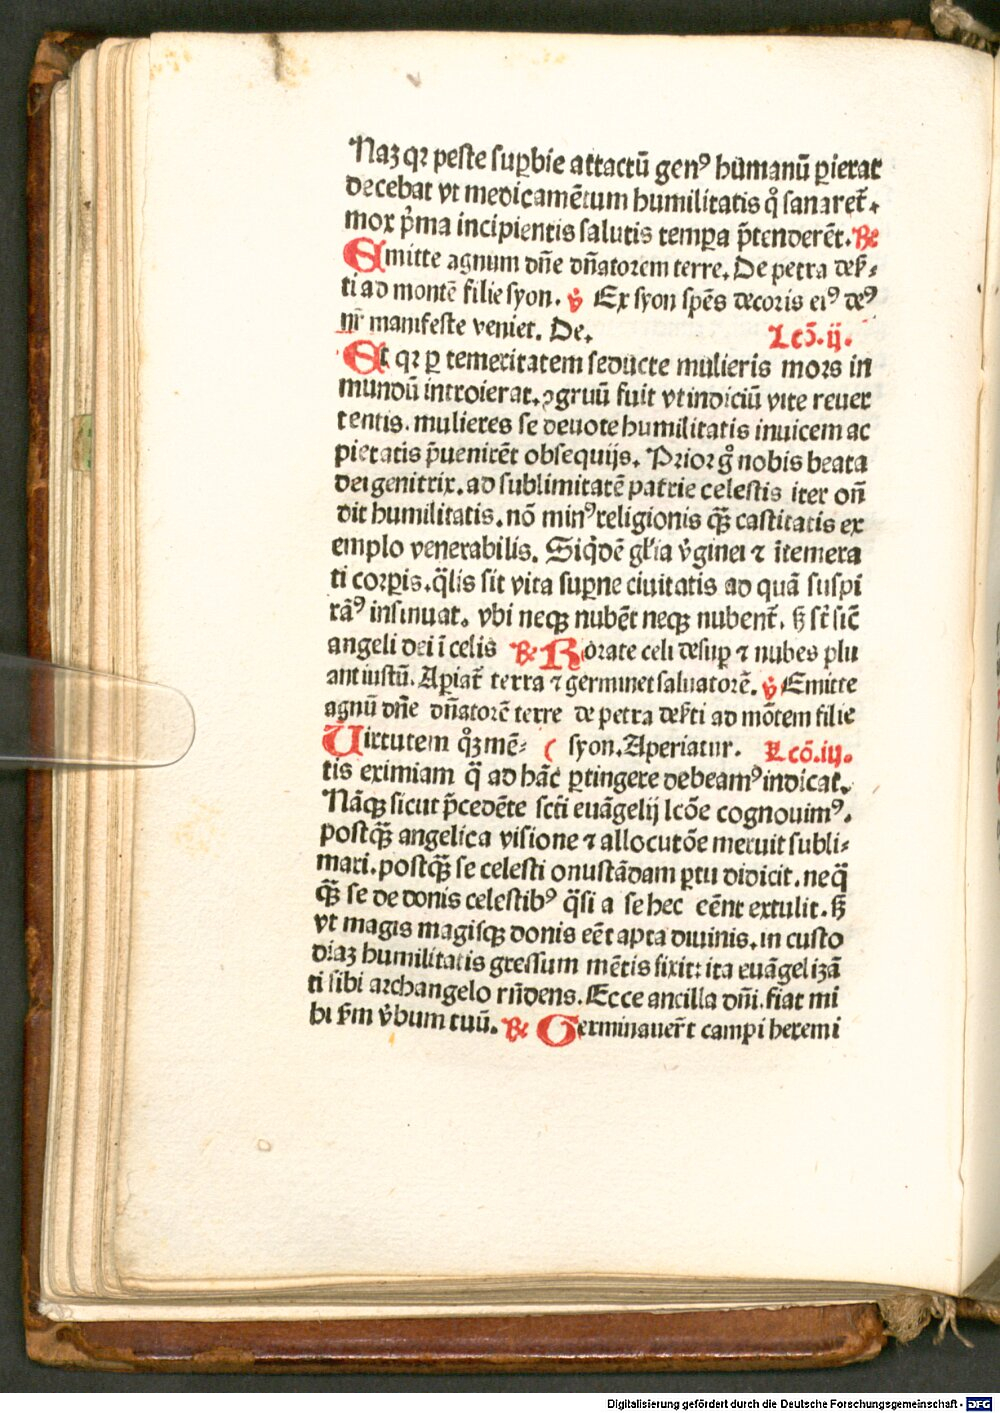 Naꝫ qꝛ peste suꝑbie attactū genꝰ humanū ꝑierat
decebat vt medicamētum humilitatis qͦ sanaret᷒.
mox pͥma incipientis salutis tempꝑa p̄tenderēt. ℞
Emitte agnum dn̄e dn̄atorem terre. De petra deẜ⸗
ti ad montē filie syon. ℣ Ex syon spēs decoris eiꝰ deꝰ
nr̄ manifeste veniet. De. Lcō. ij.
Et qꝛ ꝑ temeritatem seducte mulieris mors in
mundū introierat. ꝯgruū fuit vt indiciū vite reuer
tentis. mulieres se deuote humilitatis inuicem ac
pietatis p̄uenirēt obsequijs. Prior gͦ nobis beata
dei genitrix. ad sublimitatē patrie celestis iter on̄
dit humilitatis. nō minꝰ religionis qꝫ̄ castitatis ex
emplo venerabilis. Siqͥdē gl̄ia v̓ginei ⁊ ītemera
ti corꝑis. q̄lis sit vita suꝑne ciuitatis ad quā suspi
rāꝰ insinuat. vbi neqꝫ nubēt neqꝫ nubent᷒. ẜꝫ st̄ sic̄
angeli dei ī celis ℞ Rorate celi desuꝑ ⁊ nubes plu
ant iustū. Aꝑiat᷒ terra ⁊ germinet saluatorē. ℣ Emitte
agnū dn̄e dn̄atorē terre de petra deẜti ad mōtem filie
Uirtutem qͦꝫ mē⸗ ( syon. Aperiatur. Lcō. iij.
tis eximiam q̄ ad hāc ꝑtingere debeamꝰ indicat.
Nāqꝫ sicut p̄cedēte scti euāgelij lcōe cognouimꝰ.
postqꝫ̄ angelica visione ⁊ allocutōe meruit subli⸗
mari. postqꝫ̄ se celesti onustādam ꝑtu didicit. neq̄
qꝫ̄ se de donis celestibꝰ q̄si a se hec eēnt extulit. ẜꝫ
vt magis magisqꝫ donis eēt apta diuinis. in custo
diaꝫ humilitatis gressum mētis fixit: ita euāgelizā
ti sibi archangelo rn̄dens. Ecce ancilla dn̄i. fiat mi
hi ẜm v̓bum tuū. ℞ Germinauer̄t campi heremi
Digitalisierung gefördert durch die Deutsche Forschungsgemeinschaft - DFG